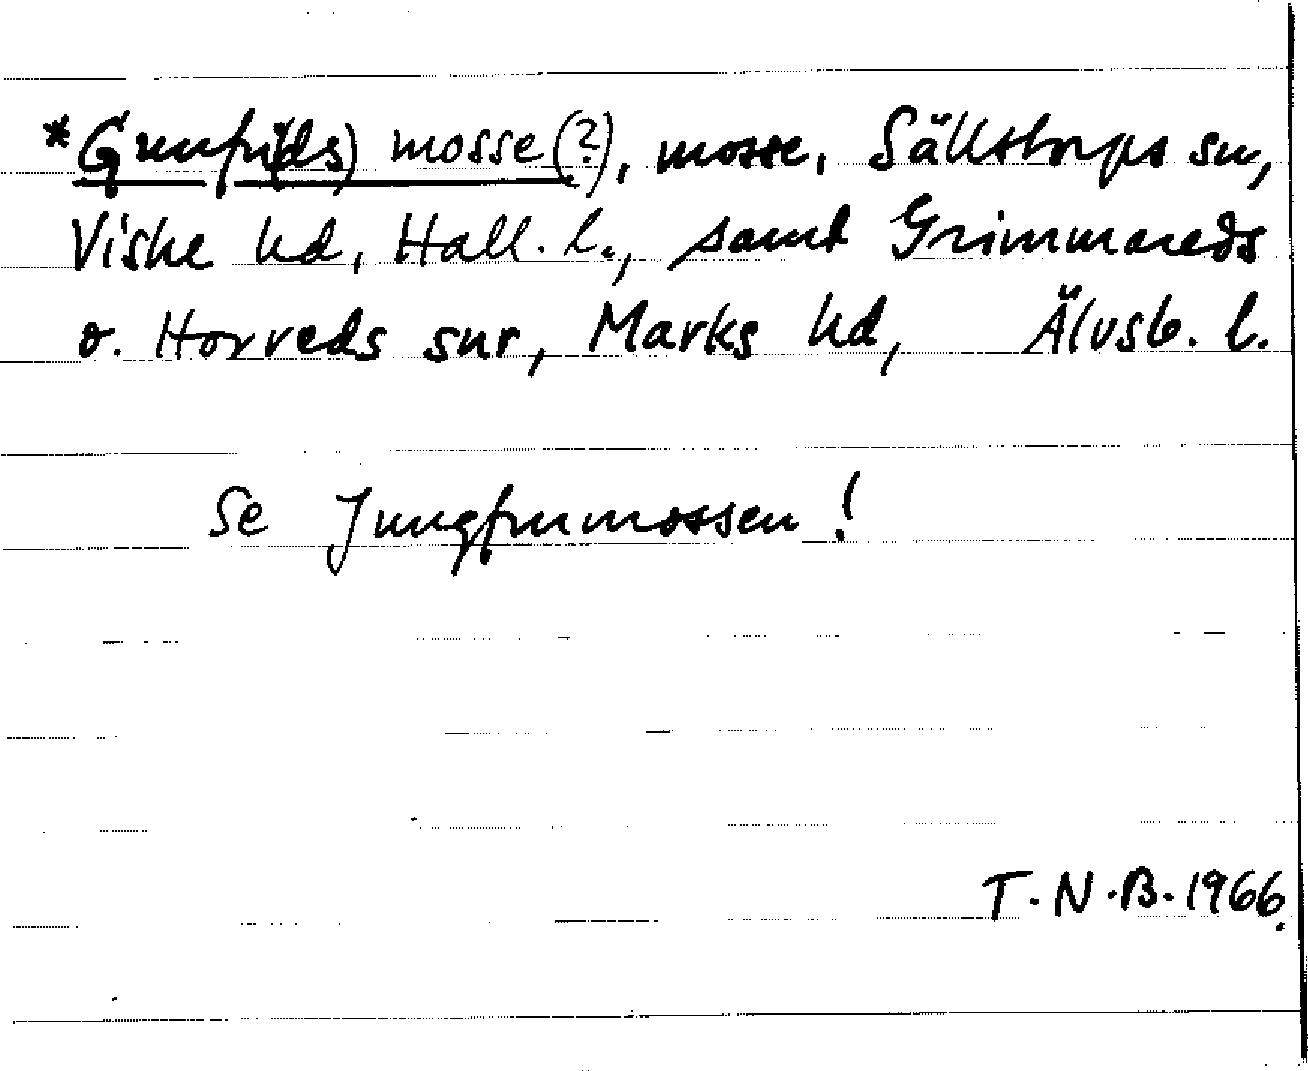 *Gunfri(ds) mosse(?), mosse, Sällstorps sn,
Viske hd, Hall. l., samt Grimmareds
o. Horreds snr, Marks hd, Älvsb. l.
Se Jungfrumossen!
T.N.B. 1966.